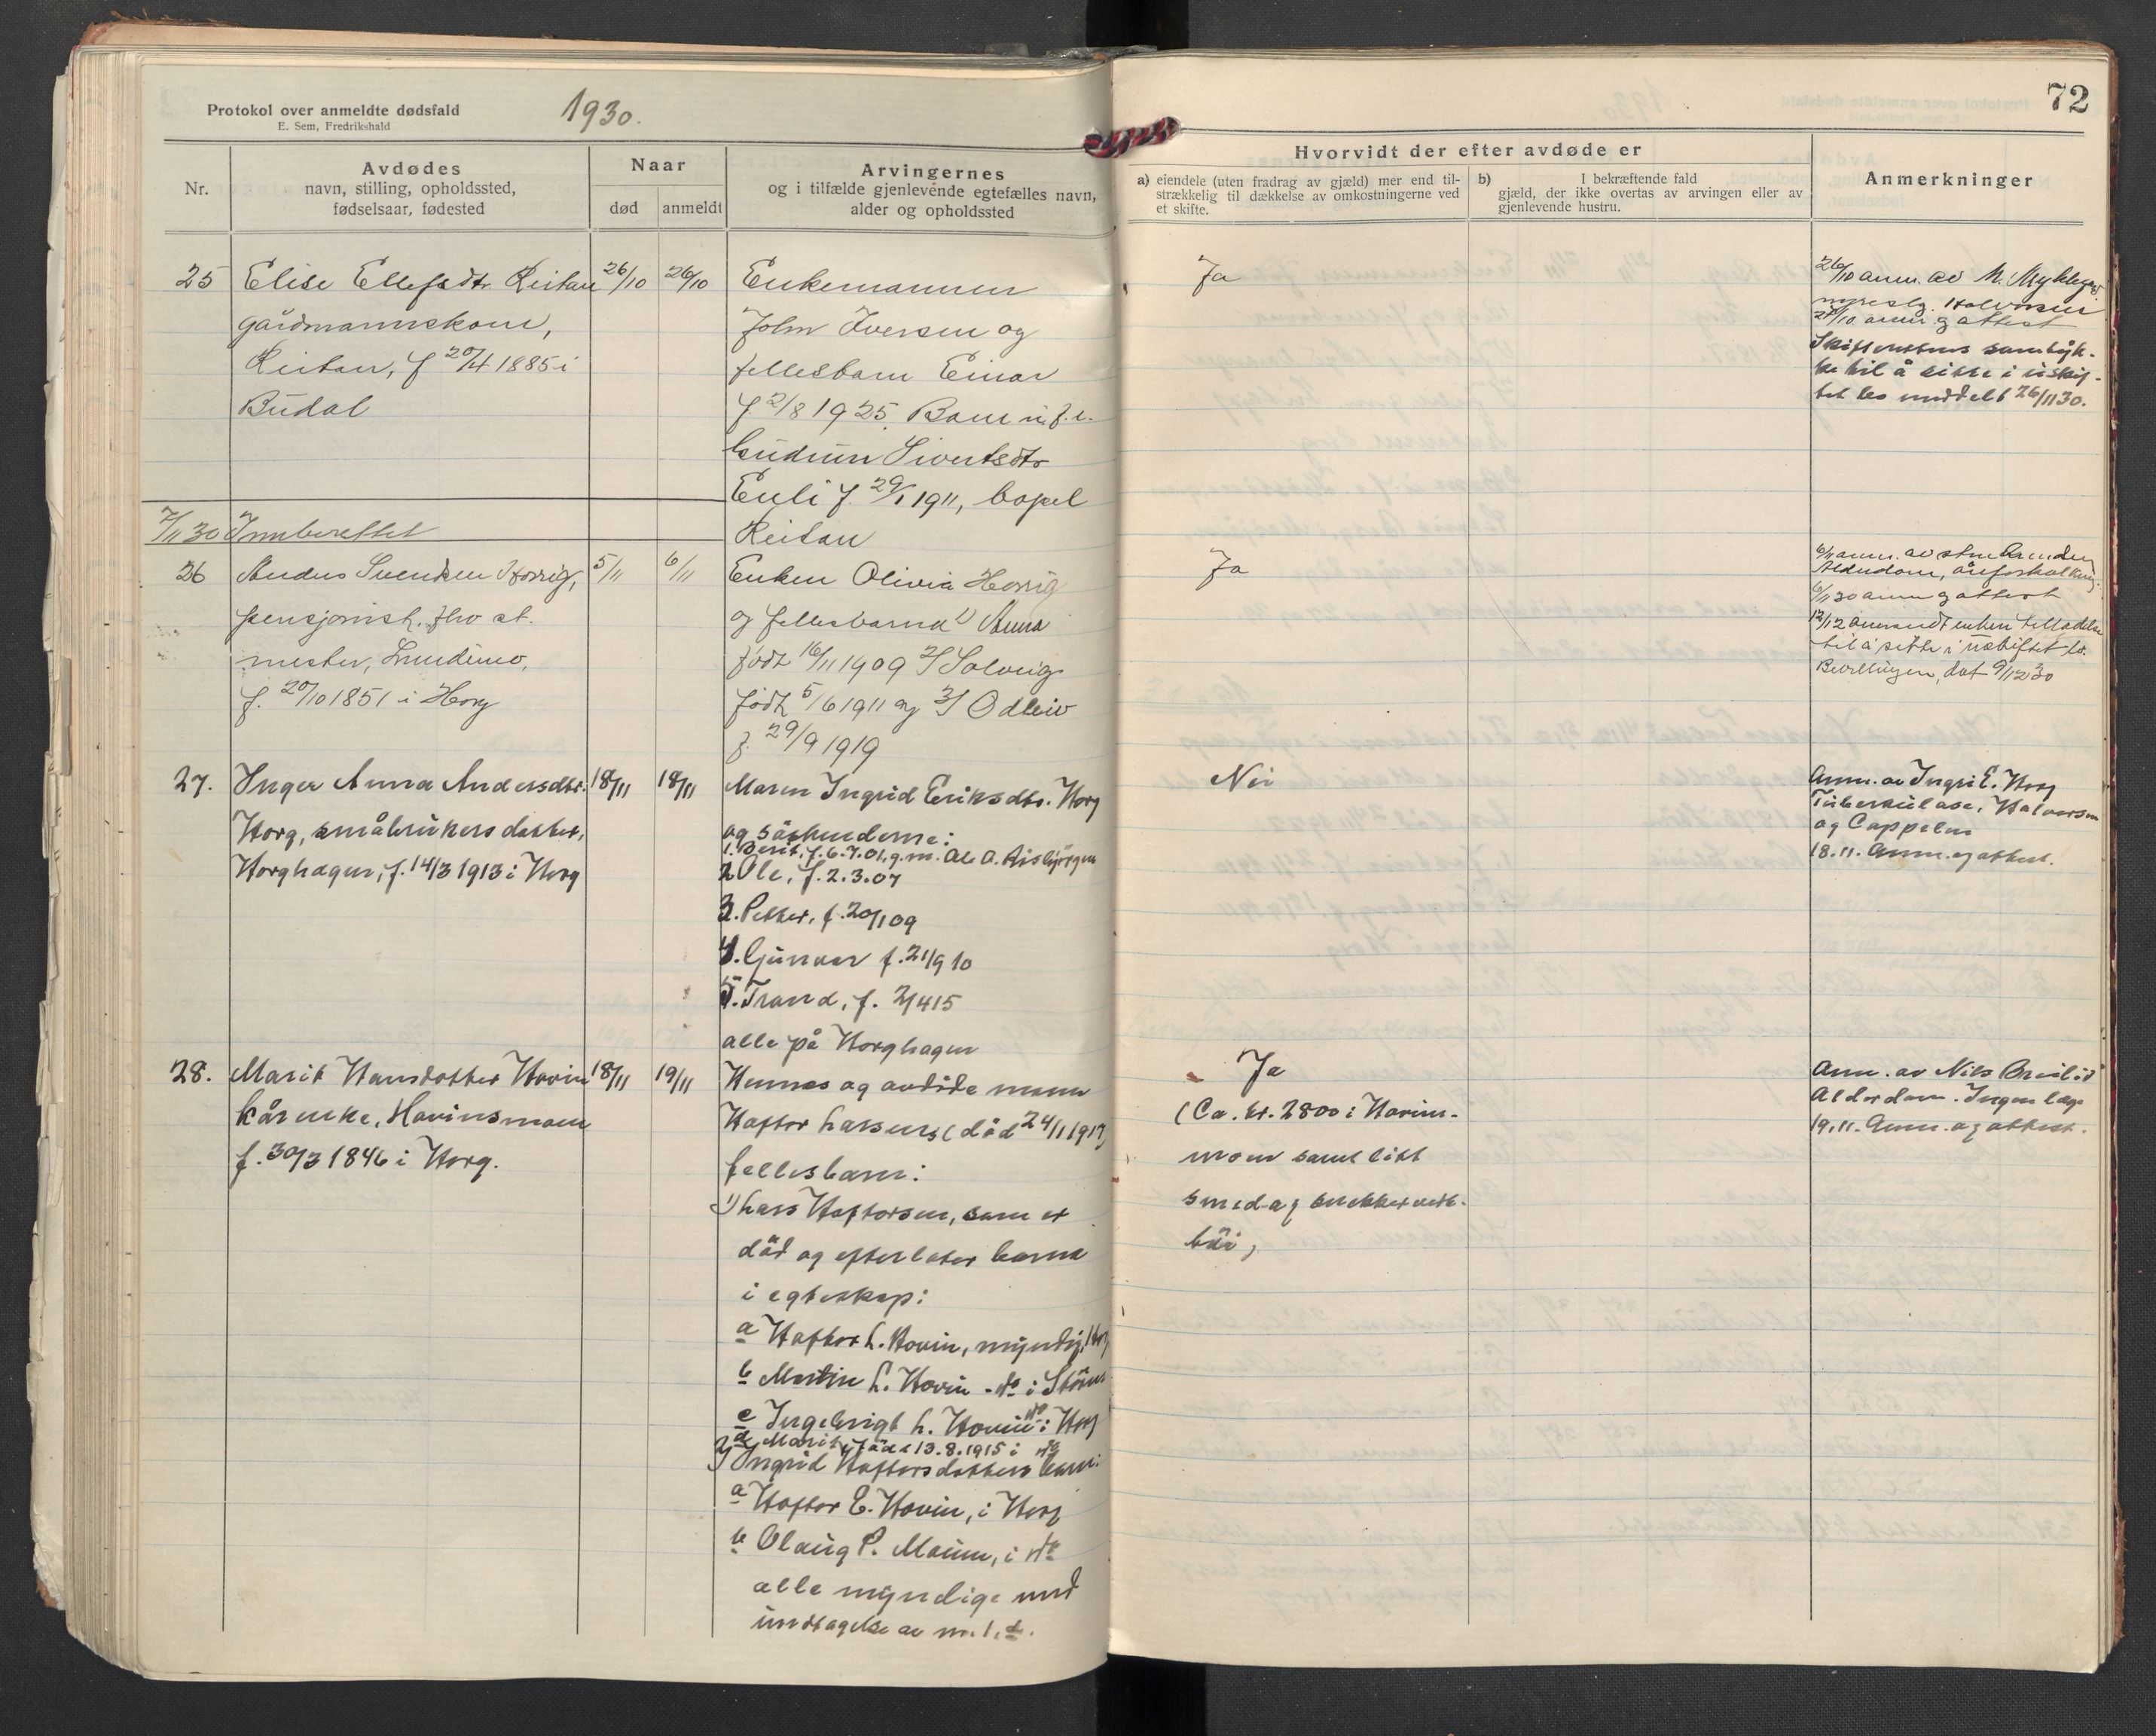 Protokol over anmeldte dødsfald
E. Sem, Fredrikshald
1930.
72
Nr.
Avdødes
navn, stilling, opholdssted,
fødselsaar, fødested
Naar
død
anmeldt
Arvingernes
og i tilfælde gjenlevende egtefælles navn,
alder og opholdssted
Hvorvidt der efter avdøde er
a) eiendele (uten fradrag av gjæld) mer end til-
strækkelig til dækkelse av omkostningerne ved
et skifte.
b) I bekræftende fald
gjæld, der ikke overtas av arvingen eller av
gjenlevende hustru.
Anmerkninger
25
Elise Ellefsdtr Reitan
gårdmannskone,
Reitan, f 20/4 1885 i
Budal
26/10
26/10
Enkemannen
John Iversen og
fellesbarn Einar
f 2/8 1925. Barn u.f.e.
Gudrun Sivertsdtr
Enli f. 29/1 1911, bopel
Reitan
Ja
26/10 anm. av M. Myklegård
28/10 anm. g attest
Skifterettens samtyk-
ke til å sitte i uskif-
tet bo meddelt 26/11 30.
7/11 30 Innberettet
26
Anders Svendsen Horrig,
pensjonist, fhv st.
mester, Lundemo,
f. 20/10 1851 i Horg
5/11
6/11
Enken Olivia Horrig
og fellesbarna 1) Anna
født 16/11 1909 2) Solveig
født 5/6 1911 og 3) Odleiv
f. 29/9 1919
Ja
Alderdom, åreforkalkning
6/11 30 anm g attest
12/12 anvendt enken tilladelse
til å sitte i uskiftet bo.
Bevillingen, dat 9/12 30
27.
Inger Anna Andersdtr.
Horg, småbrukers datter,
Horghagen, f. 14/3 1913 i Horg
18/11
18/11
Maren Ingrid Eriksdtr. Horg
og søskenderne:
1. Berit, f. 6.7.01, g.m. Ole A.
2 Ole, f. 2.3.07
3. Petter, f. 20/1 09
4. Gunvor f. 21/9 10
5. Trond, f. 2/4 15
alle på Horghagen
Nei
Anm. av Ingri E. Horg
Tuberkulose, Halvorsen
og Cappelen
18.11. Anm. og attest.
28.
Marit Hansdatter Hovin
kårenke, Hovinsmoen
f. 30/3 1846 i Horg.
18/11
19/11
Hennes og avdøde mann
Haftor Larsens (død 24/1 1917)
fellesbarn:
1) Lars Haftorsen, som er
død og efterlater barna
i egteskap:
a Haftor L. Hovin, myndig, Horg
b Martin L. Hovin - do i Støren
c Ingebrigt L. Hovin do i Horg
d Marit, født 13.8.1915 i do
2) Ingrid Haftorsdatters barn:
a Haftor E. Hovin, i Horg
b Olaug P. Moum, i do
alle myndige med
undtagelse av nr. 1, d.
Ja
(Ca. kr. 2800 i Hovins-
moen samt litt
smed- og snekkerverk-
tøi)
Anm. av Nils
Alderdom. Ingen læge
19.11. Anm. og attest.